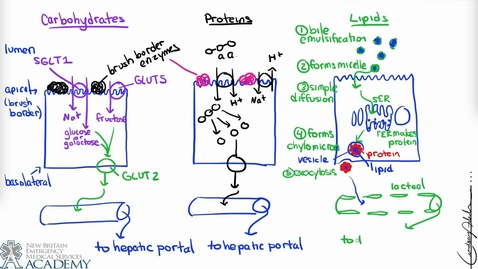 Carbohydrates
Proteins
Lipids
lumen
SGLT1
brush border
enzymes
GLUT5
apical
(brush
border)
Na+
glucose
or
galactose
fructose
GLUT2
basolateral
to hepatic portal
a a
H+
H+
Na+
to hepatic portal
① bile
emulsification
② forms micelle
③ simple
diffusion
SER
rER makes
protein
④ forms
chylomicron
vesicle
protein
lipid
⑤ exocytosis
lacteal
to
NEW BRITAIN
EMERGENCY
MEDICAL SERVICES
ACADEMY